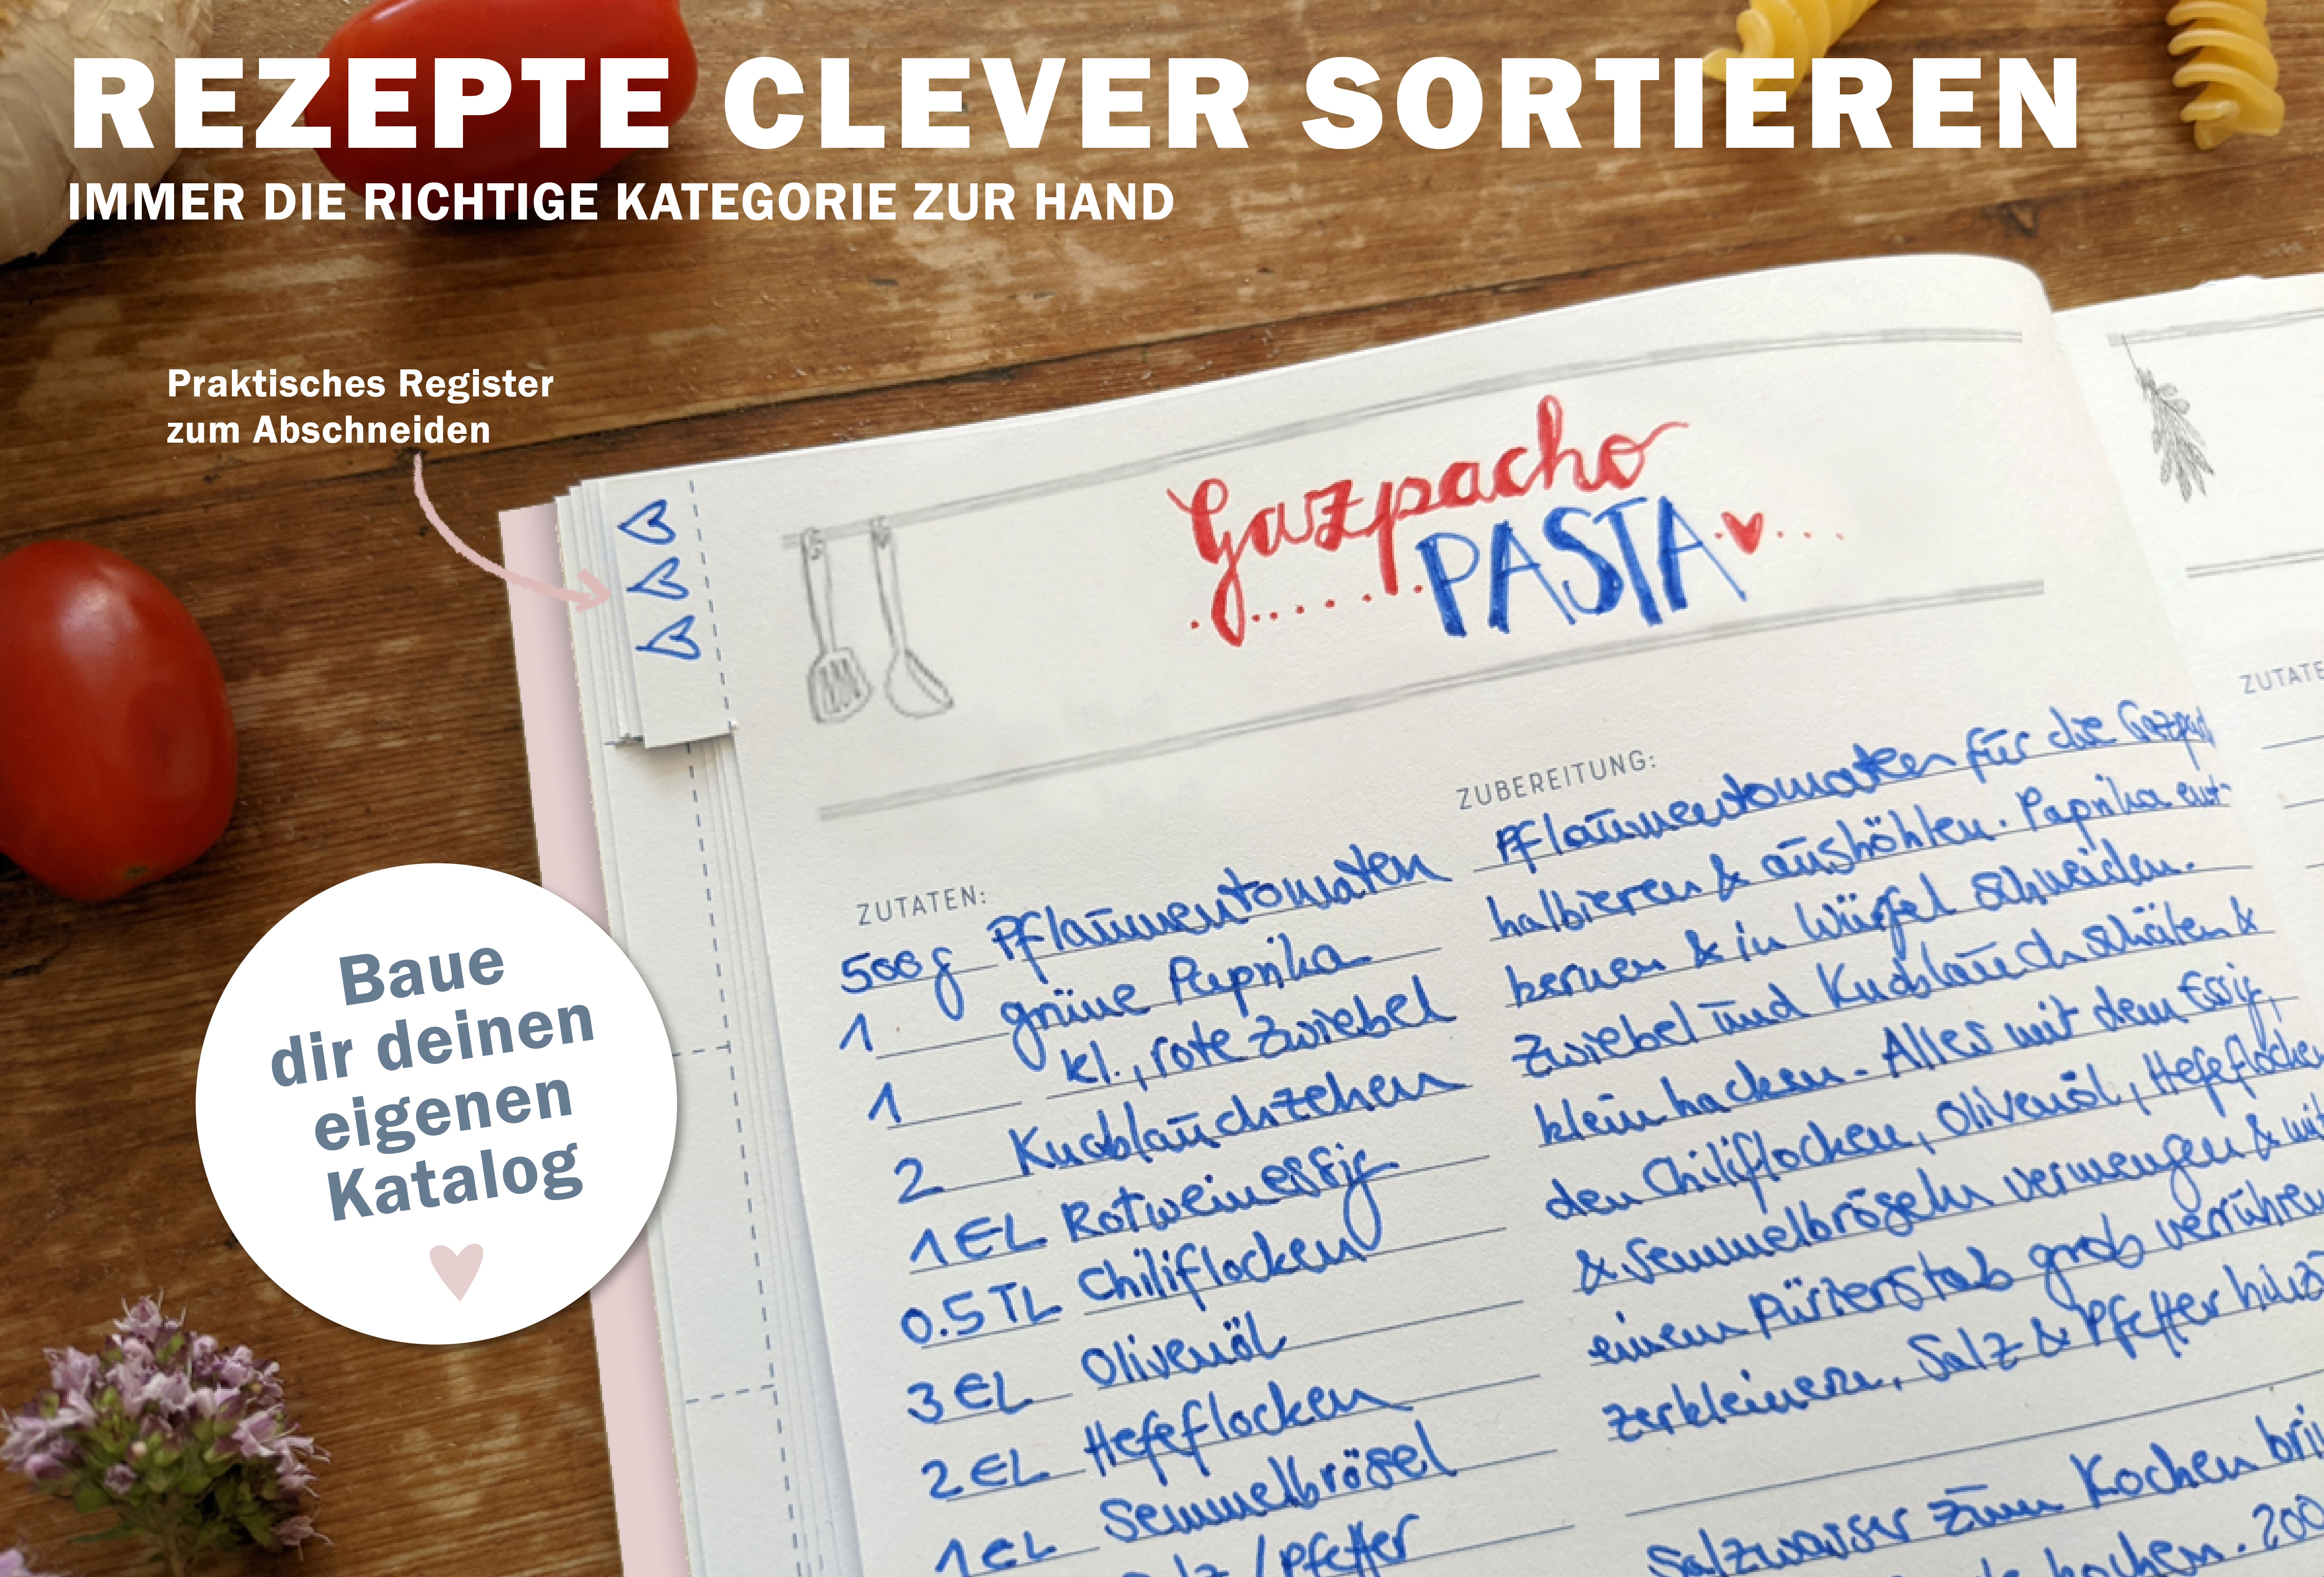 REZEPTE CLEVER SORTIEREN
IMMER DIE RICHTIGE KATEGORIE ZUR HAND
Praktisches Register
zum Abschneiden
Baue
dir deinen
eigenen
Katalog
Gazpacho
PASTA
ZUTATEN:
500g Pflaumentomaten
1 grüne Paprika
1 kl., rote Zwiebel
2 Knoblauchzehen
1 EL Rotweinessig
0.5 TL Chiliflocken
3 EL Olivenöl
2 EL Hefeflocken
1 EL Semmelbrösel
/ Pfeffer
ZUBEREITUNG:
Pflaumentomaten für die
halbieren & aushöhlen. Paprika ent-
kernen & in Würfel schneiden.
Zwiebel und Knoblauch schälen &
klein hacken. Alles mit dem Essig,
den Chiliflocken, Olivenöl, Hefeflocken
& Semmelbröseln vermengen & mit
einem Pürierstab grob verrühren
zerkleinern, Salz & Pfeffer
Salzwasser zum Kochen
kochen. 200